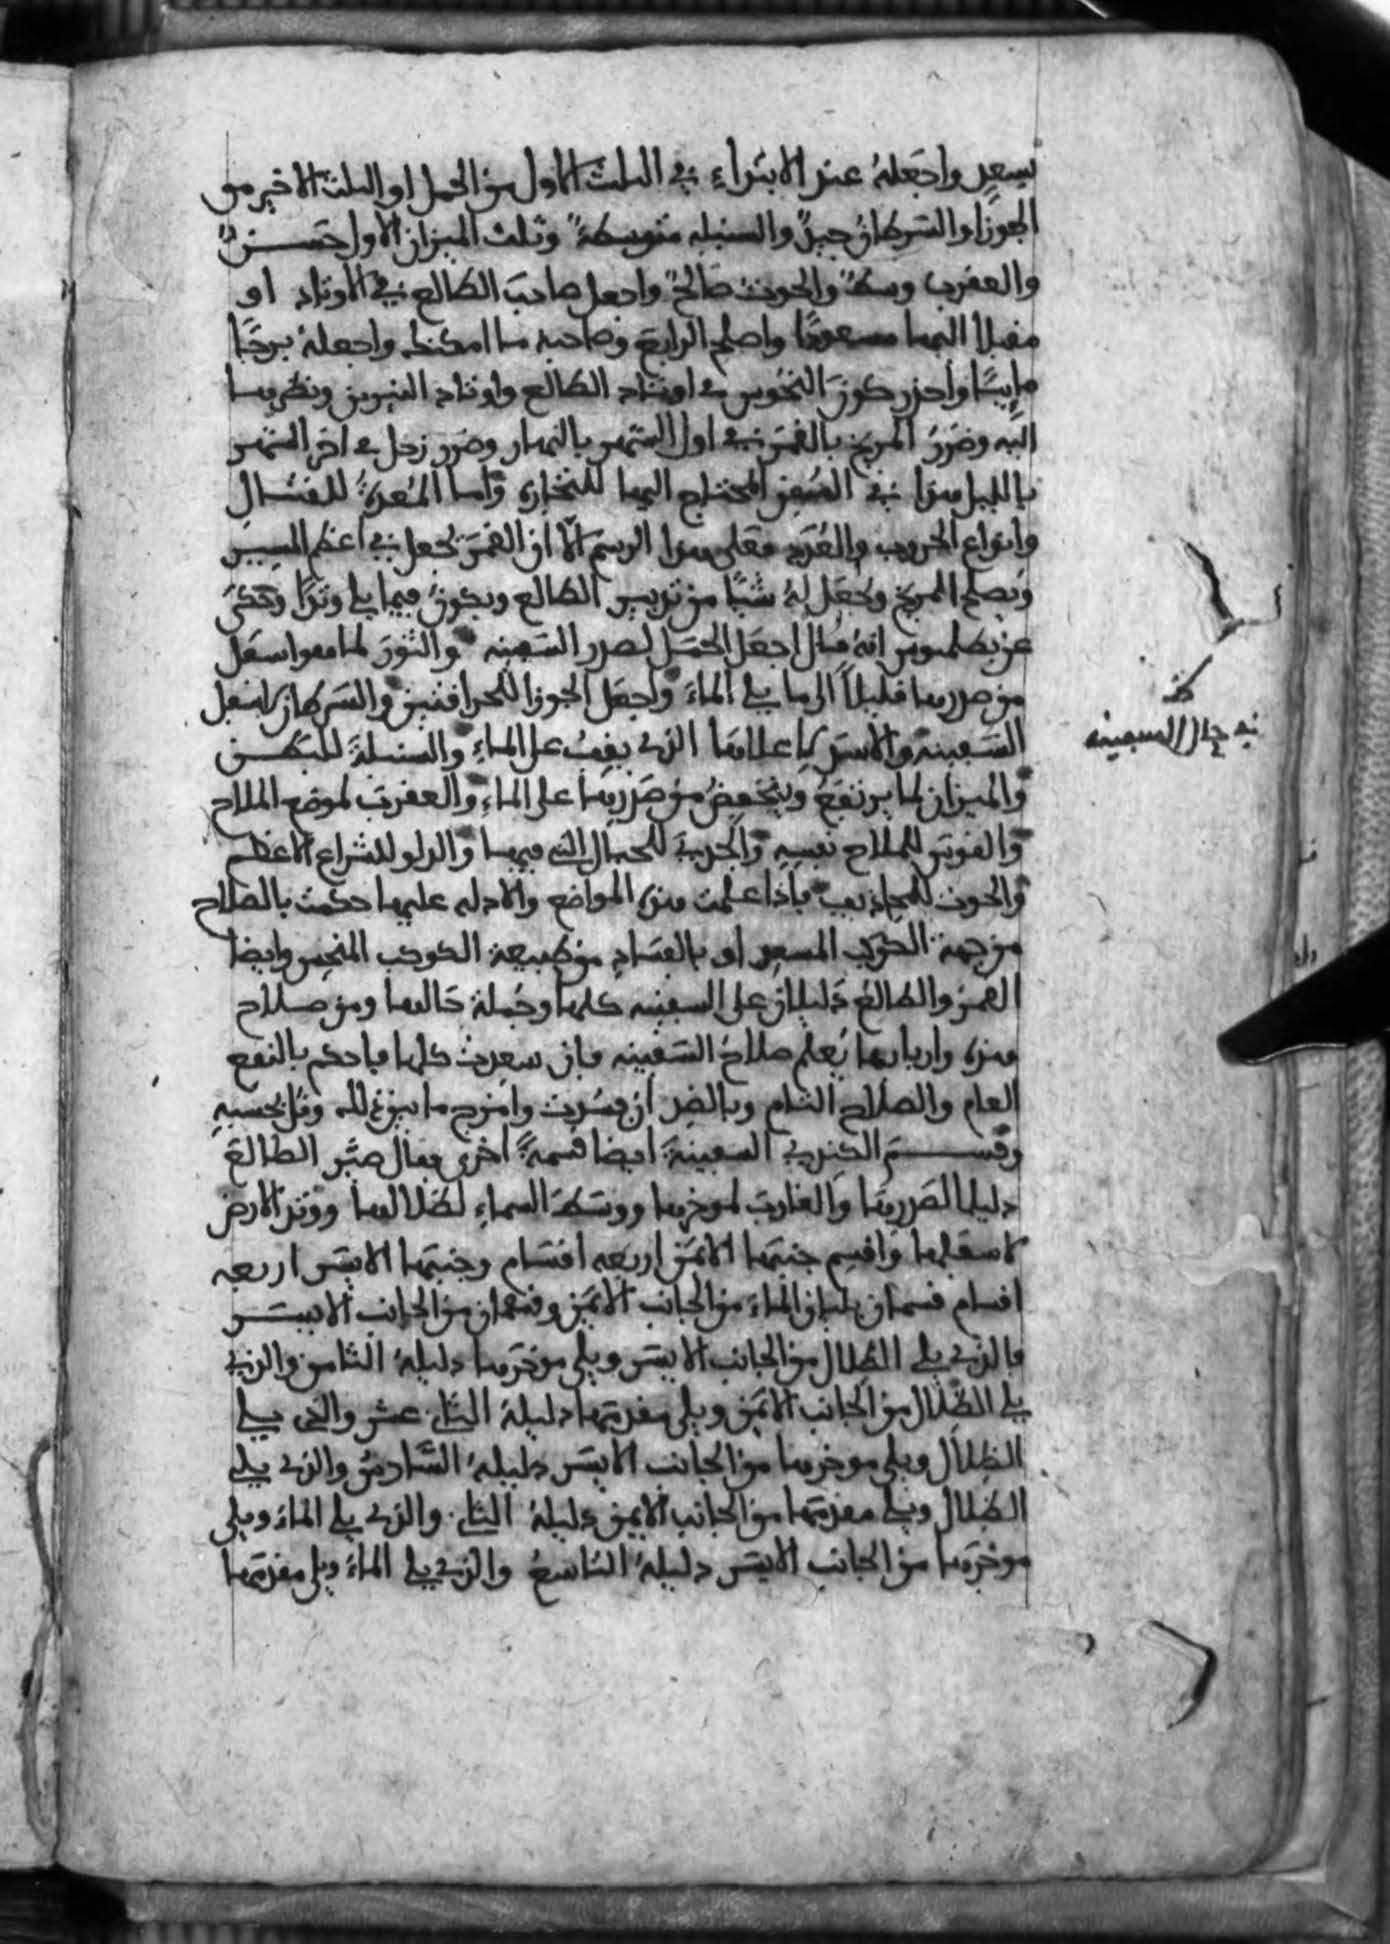 بسعد واجعله عند الابتداء في الثلث الاول من الحمل او الثلث الاخير من
الجوزا والسرطان جيد والسنبله متوسطة وثلث الميزان الاول حسن
والعقرب وسط والحوت صالح واجعل صاحب الطالع في الاوتاد او
مقبلا اليها مسعودا واصلح الرابع وصاحبه ما امكنك واجعله برجا
مايئا واحذر كون النحوس في اوتاد الطالع واوتاد النيرين ونظرهما
اليه وضرر المريخ بالقمر في اول الشهر بالنهار وضرر زحل في اخر الشهر
بالليل هذا في السفن المحتاج اليها للتجارة واما المعدة للقتال
وانواع الحروب والعدد فعلى هذا الرسم الا ان القمر يجعل في اعظم المسير
ويصلح المريخ ويجعل له شيئا من تدبير الطالع ويكون فيما يلي وتدا وحكى
عن بطلميوس انه قال اجعل الحمل لصدر السفينه والثور لما هو اسفل
من صدرها قليلا الى ما يلي الماء واجعل الجوزا للحرافتين والسرطان لاسفل
السفينه والاسد لاعلاها الذي يقف على الماء والسنبلة للبطن
والميزان لما يرتفع وينخفض من صدرها على الماء والعقرب لموضع الملاح
والقوس للملاح نفسه والجدي للحبال التي فيها والدلو للشراع الاعظم
والحوت للمجاذيف فاذا علمت هذه المواضع والادله عليها حكمت بالصلاح
من جهة الكوكب المسعد او بالفساد من طبيعة الكوكب المنحس وايضا
القمر والطالع دليلان على السفينه كلها وجملة حالها ومن صلاح
هذه واربابها يعلم صلاح السفينه فان سعدت كلها فاحكم بالنفع
العام والصلاح التام وبالضر ان فسدت وامزج ما بين ذلك وقل بحسبه
وقسم الكندي السفينة ايضا قسمة اخرى فقال صير الطالع
دليلا لصدرها والغارب لموخرها ووسط السماء لظلالها ووتد الارض
لاسفلها واقسم جنبها الايمن اربعه اقسام وجنبها الايسر اربعه
اقسام قسمان يليان الماء من الجانب الايمن وقسمان من الجانب الايسر
فالذي يلي الظلال من الجانب الايسر ويلي موخرها دليله الثامن والذي
يلي الظلال من الجانب الايمن ويلي مقدمها دليله الثاني عشر والتي يلي
الظلال ويلي موخرها من الجانب الايسر دليله السادس والذي يلي
الظلال ويلي مقدمها من الجانب الايمن دليله الثاني والذي يلي الماء ويلي
موخرها من الجانب الايسر دليله التاسع والذي يلي الماء ويلي مقدمها
في حال السفينه